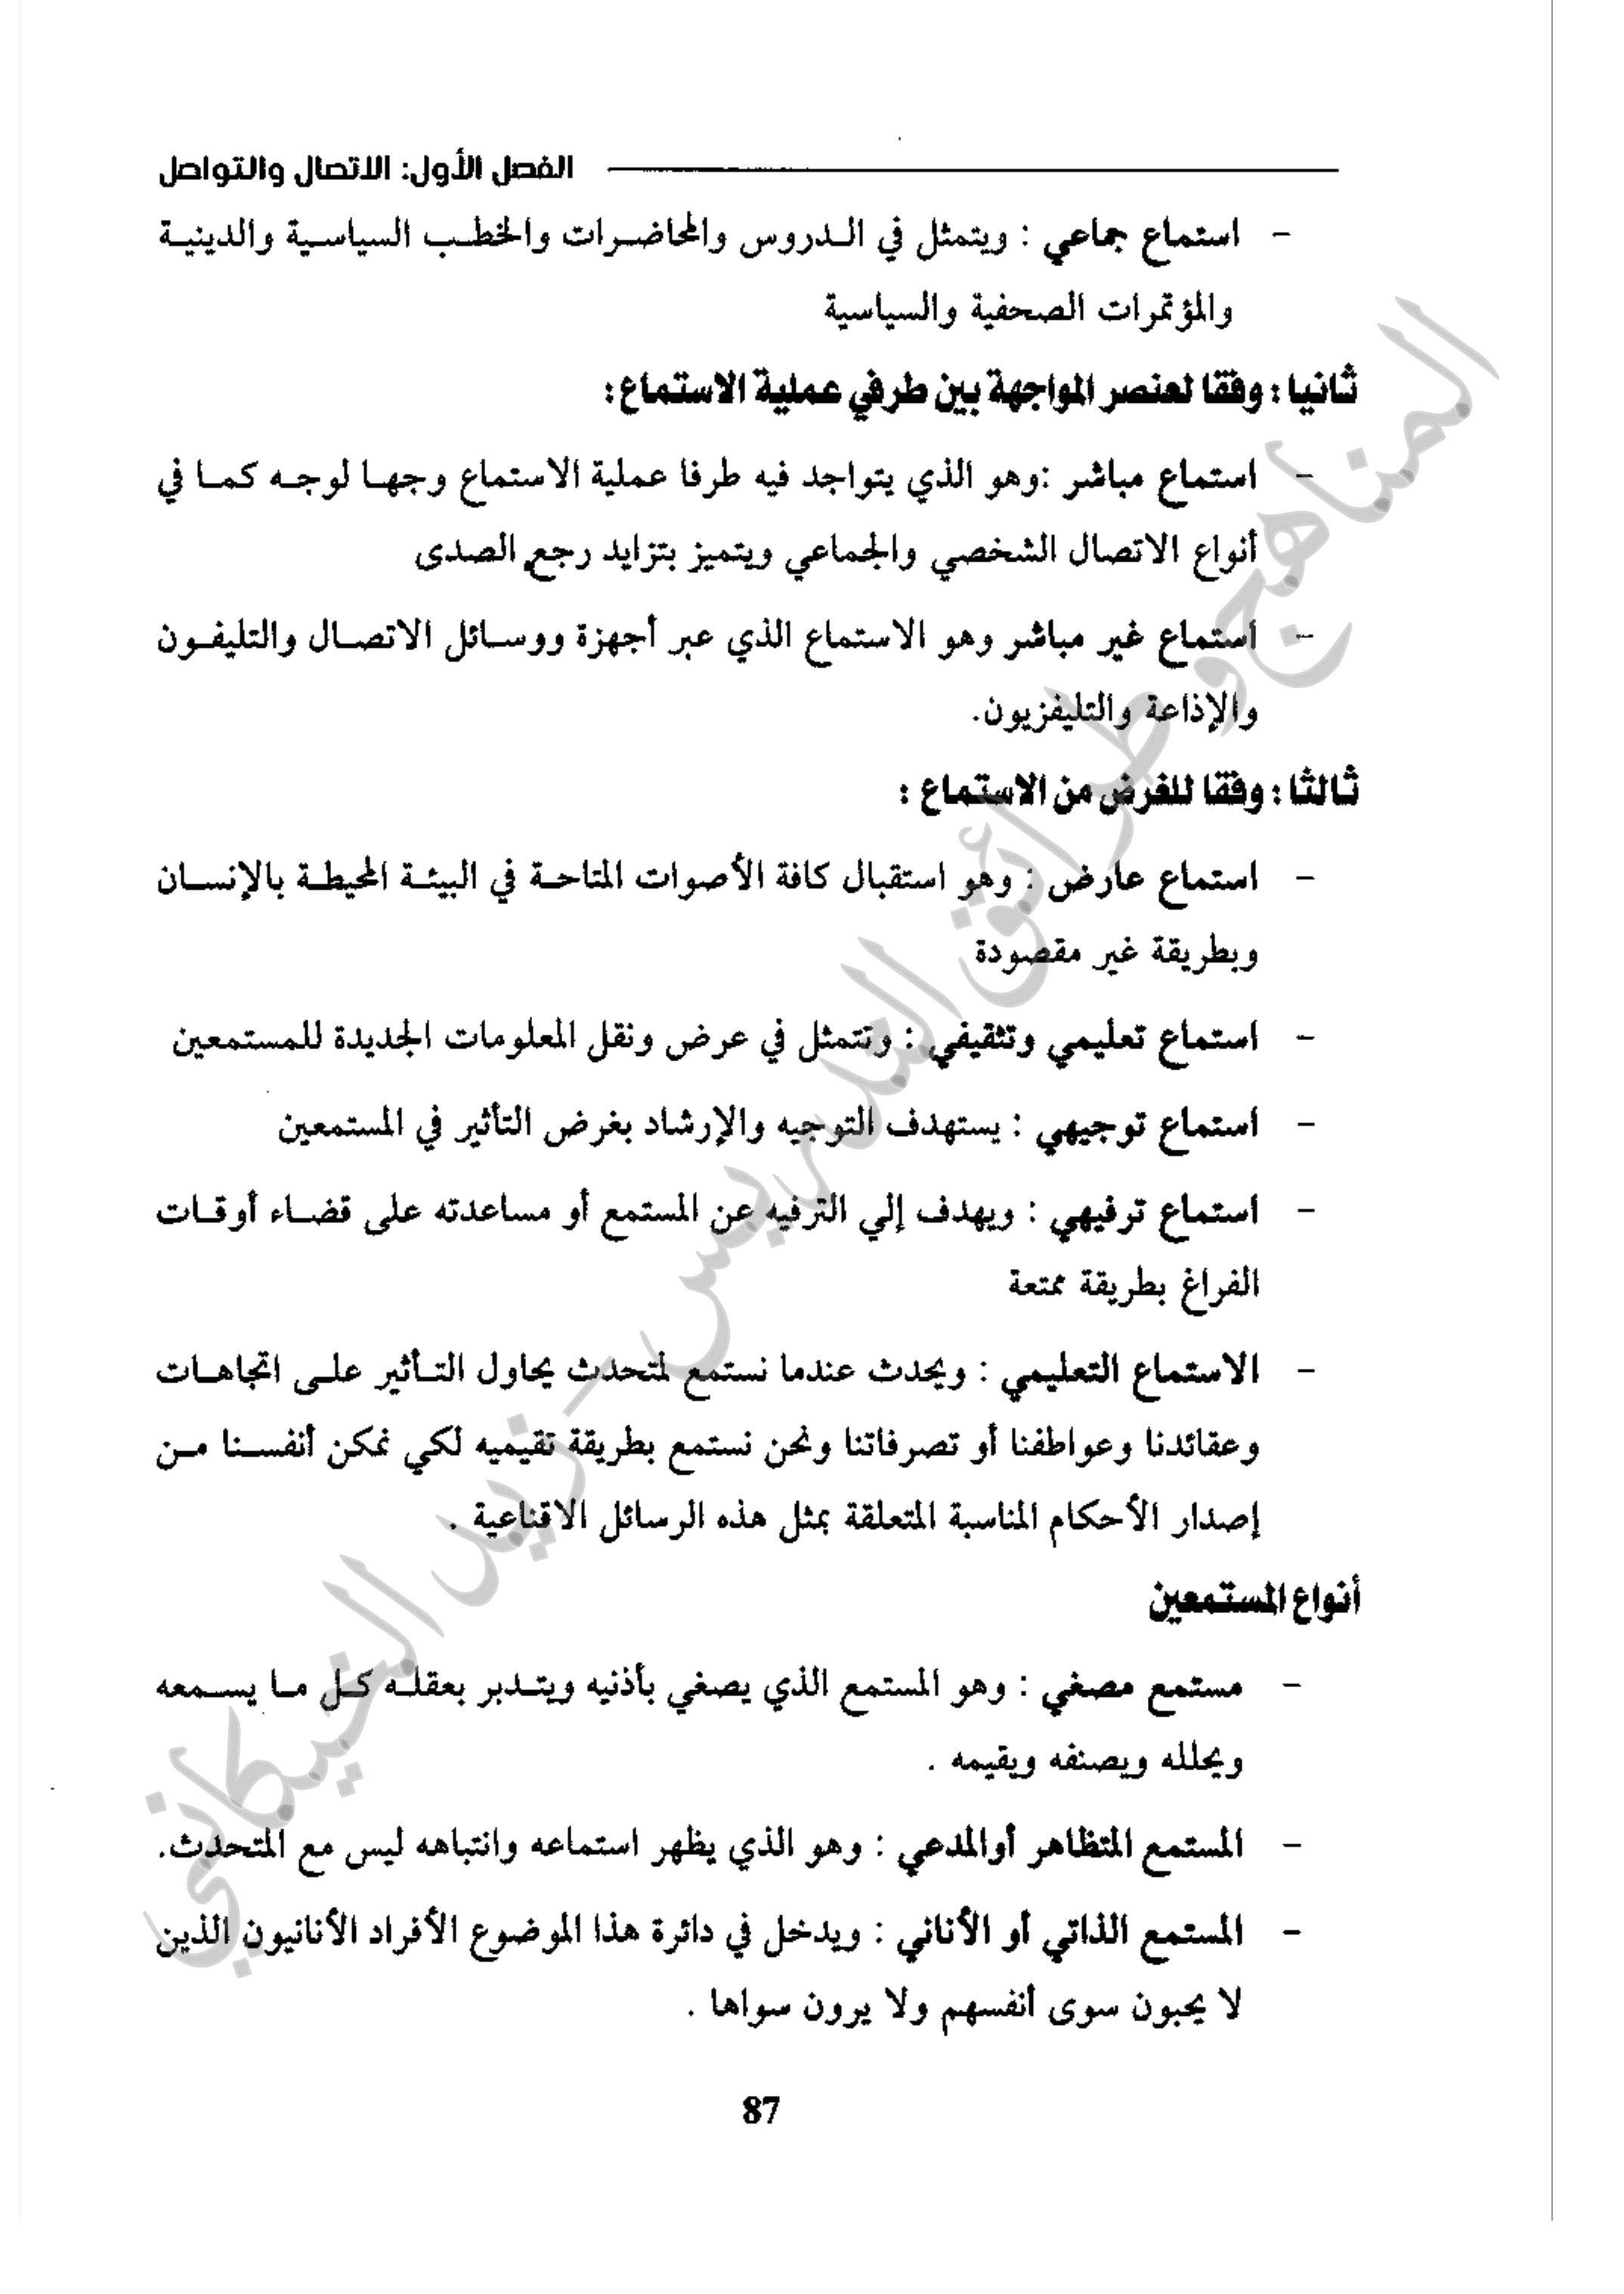 الفصل الأول: الاتصال والتواصل
- استماع جماعي : ويتمثل في الدروس والمحاضرات والخطب السياسية والدينية
والمؤتمرات الصحفية والسياسية
ثانيا : وفقا لعنصر المواجهة بين طرفي عملية الاستماع :
- استماع مباشر :وهو الذي يتواجد فيه طرفا عملية الاستماع وجها لوجه كما في
أنواع الاتصال الشخصي والجماعي ويتميز بتزايد رجع الصدى
- استماع غير مباشر وهو الاستماع الذي عبر أجهزة ووسائل الاتصال والتليفون
والإذاعة والتليفزيون.
ثالثا : وفقا للغرض من الاستماع :
- استماع عارض : وهو استقبال كافة الأصوات المتاحة في البيئة المحيطة بالإنسان
وبطريقة غير مقصودة
- استماع تعليمي وتثقيفي : وتتمثل في عرض ونقل المعلومات الجديدة للمستمعين
- استماع توجيهي : يستهدف التوجيه والإرشاد بغرض التأثير في المستمعين
- استماع ترفيهي : ويهدف إلي الترفيه عن المستمع أو مساعدته على قضاء أوقات
الفراغ بطريقة ممتعة
- الاستماع التعليمي : ويحدث عندما نستمع لمتحدث يحاول التأثير على اتجاهات
وعقائدنا وعواطفنا أو تصرفاتنا ونحن نستمع بطريقة تقيميه لكي نمكن أنفسنا من
إصدار الأحكام المناسبة المتعلقة بمثل هذه الرسائل الاقناعية .
أنواع المستمعين
- مستمع مصغي : وهو المستمع الذي يصغي بأذنيه ويتدبر بعقله كل ما يسمعه
ويحلله ويصنفه ويقيمه .
- المستمع المتظاهر أوالمدعي : وهو الذي يظهر استماعه وانتباهه ليس مع المتحدث.
- المستمع الذاتي أو الأناني : ويدخل في دائرة هذا الموضوع الأفراد الأنانيون الذين
لا يحبون سوى أنفسهم ولا يرون سواها .
87
المناهج وطرائق التدريس - زيد الخيكاني